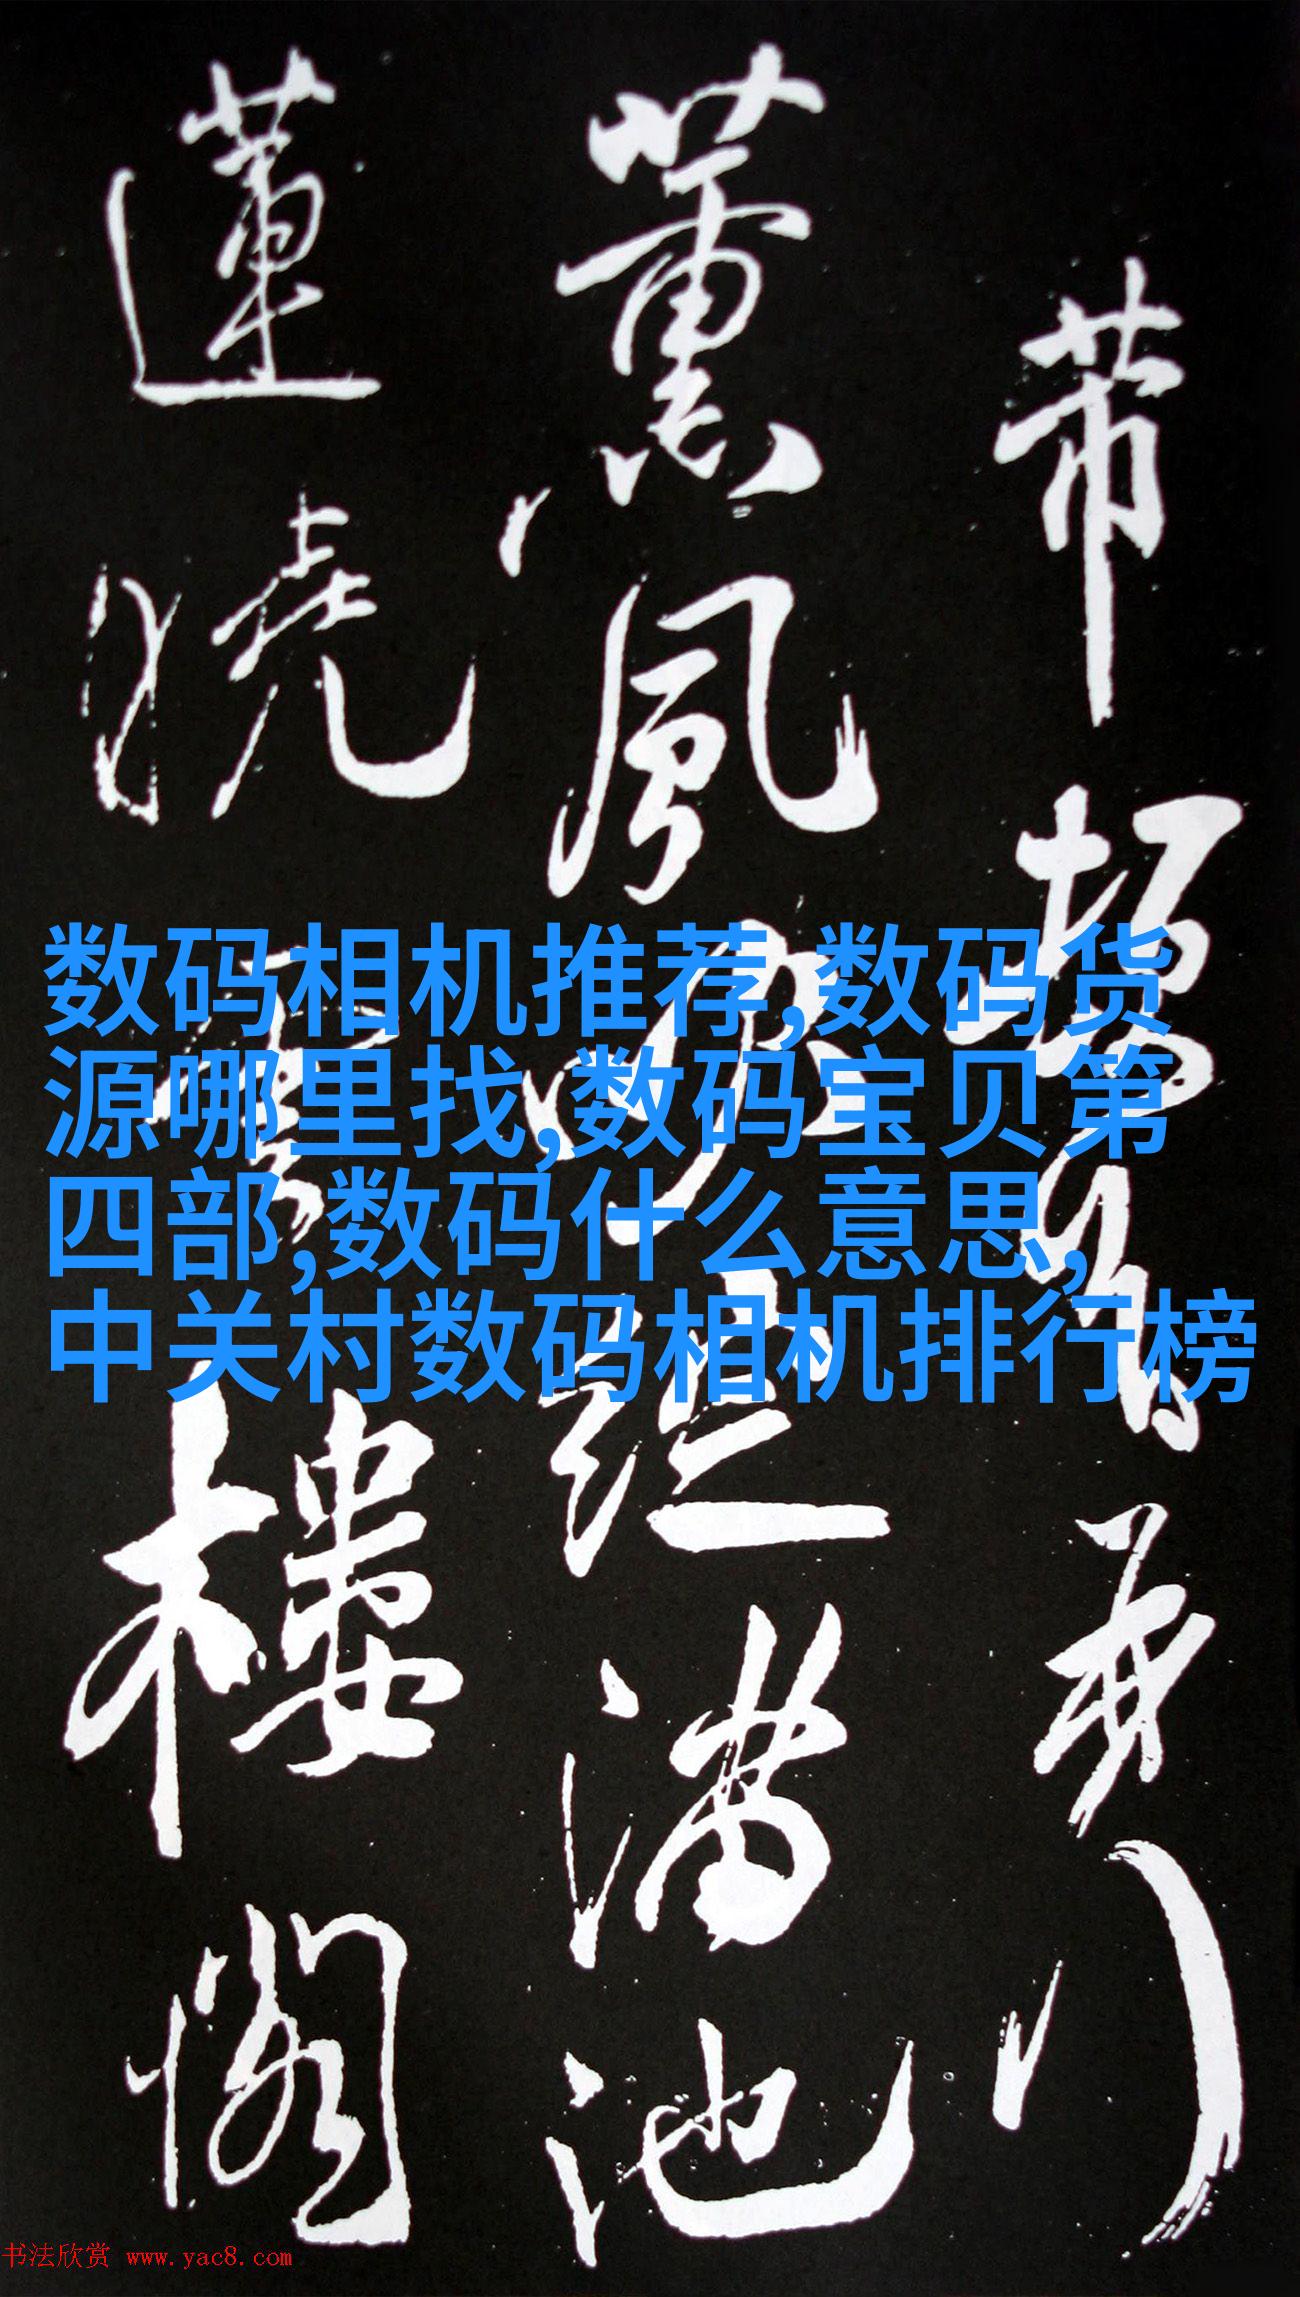 数码相机推荐,数码货
源哪里找,数码宝贝第
四部,数码什么意思,
中关村数码相机排行榜
薰風滿池
蓮樓閣
书法欣赏 www.yac8.com